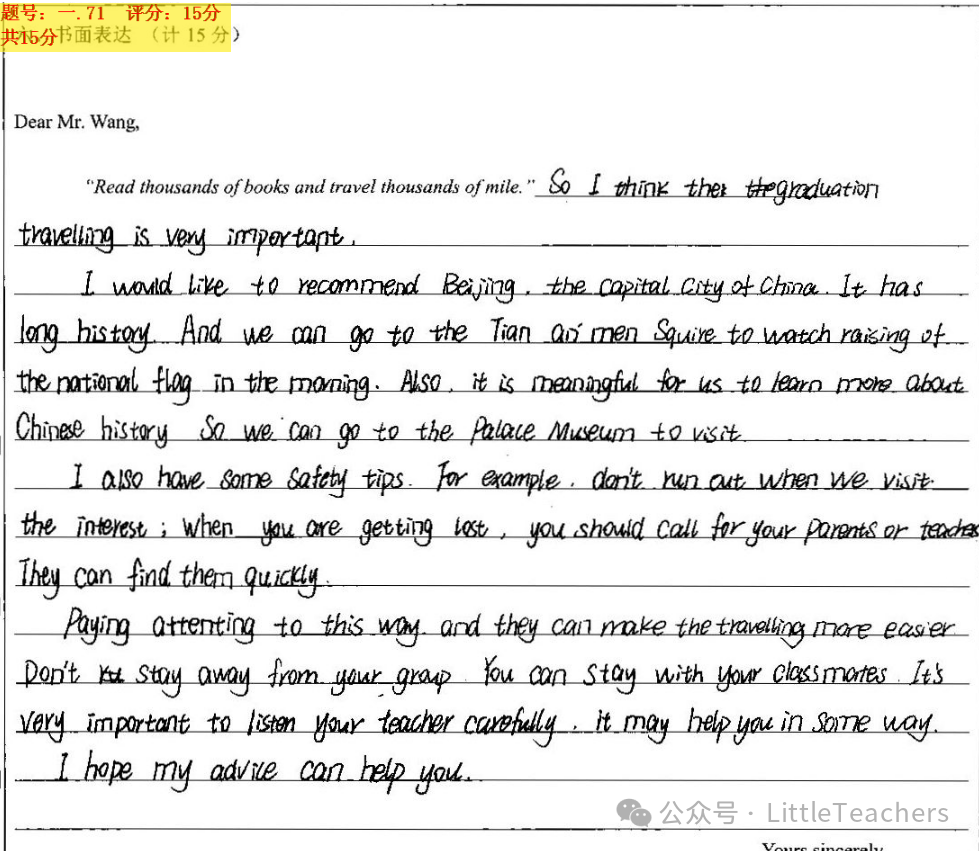 题号：一.71 评分：15分
共15分
书面表达 （计 15 分）
Dear Mr. Wang,
"Read thousands of books and travel thousands of mile." So I think the graduation
travelling is very important.
I would like to recommend Beijing, the capital city of China. It has
long history. And we can go to the Tian an men Squire to watch raising of
the national flag in the morning. Also, it is meaningful for us to learn more about
Chinese history So we can go to the Palace Museum to visit
I also have some safety tips. For example, don't run out when we visit
the interest; when you are getting lost, you should call for your parents or teaches
They can find them quickly.
Paying attenting to this way. and they can make the travelling more easier
Don't stay away from your group You can stay with your classmates. It's
very important to listen your teacher carefully. it may help you in some way.
I hope my advice can help you.
公众号 · LittleTeachers
Yours sincerely